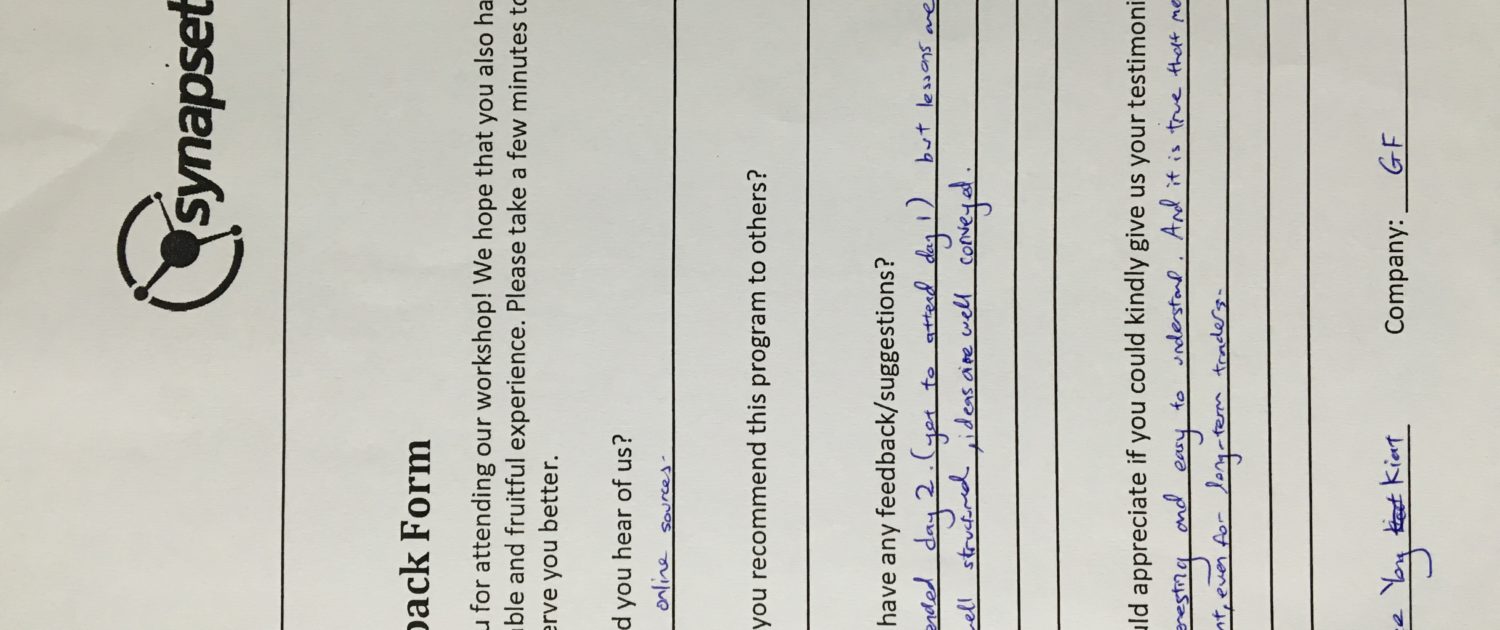 synapset
back Form
u for attending our workshop! We hope that you also ha
ble and fruitful experience. Please take a few minutes to
erve you better.
d you hear of us?
online sources.
you recommend this program to others?
have any feedback/suggestions?
ended day 2. (yet to attend day 1) but lessons are
well structured, ideas are well conveyed.
uld appreciate if you could kindly give us your testimoni
eresting and easy to understand. And it is true that me
nt, even for long-term traders.
e Yong Kiat Company: GF